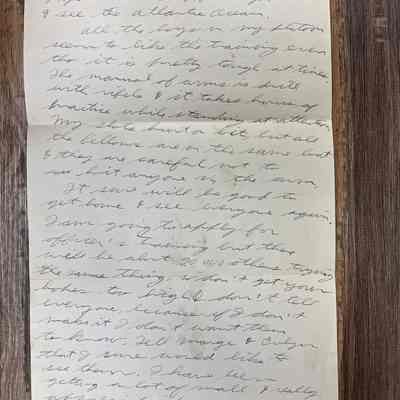 & see the Atlantic Ocean.
All the boys in my platoon
seem to like the training even
tho it is pretty tough at times.
The manual of arms is drill
with rifle & it takes hours of
practice while standing at attention.
My shots hurt a bit but all
the fellows are in the same boat
& they are careful not to
hit anyone in the arm.
It sure will be good to
get home & see everyone again.
I am going to apply for
officer's training but there
will be about others trying
the same thing, so don't get your
hopes too high & don't tell
everyone because if I don't
make it I don't want them
to know. Tell Marge &
that I sure would like to
see them. I have been
getting a lot of small &